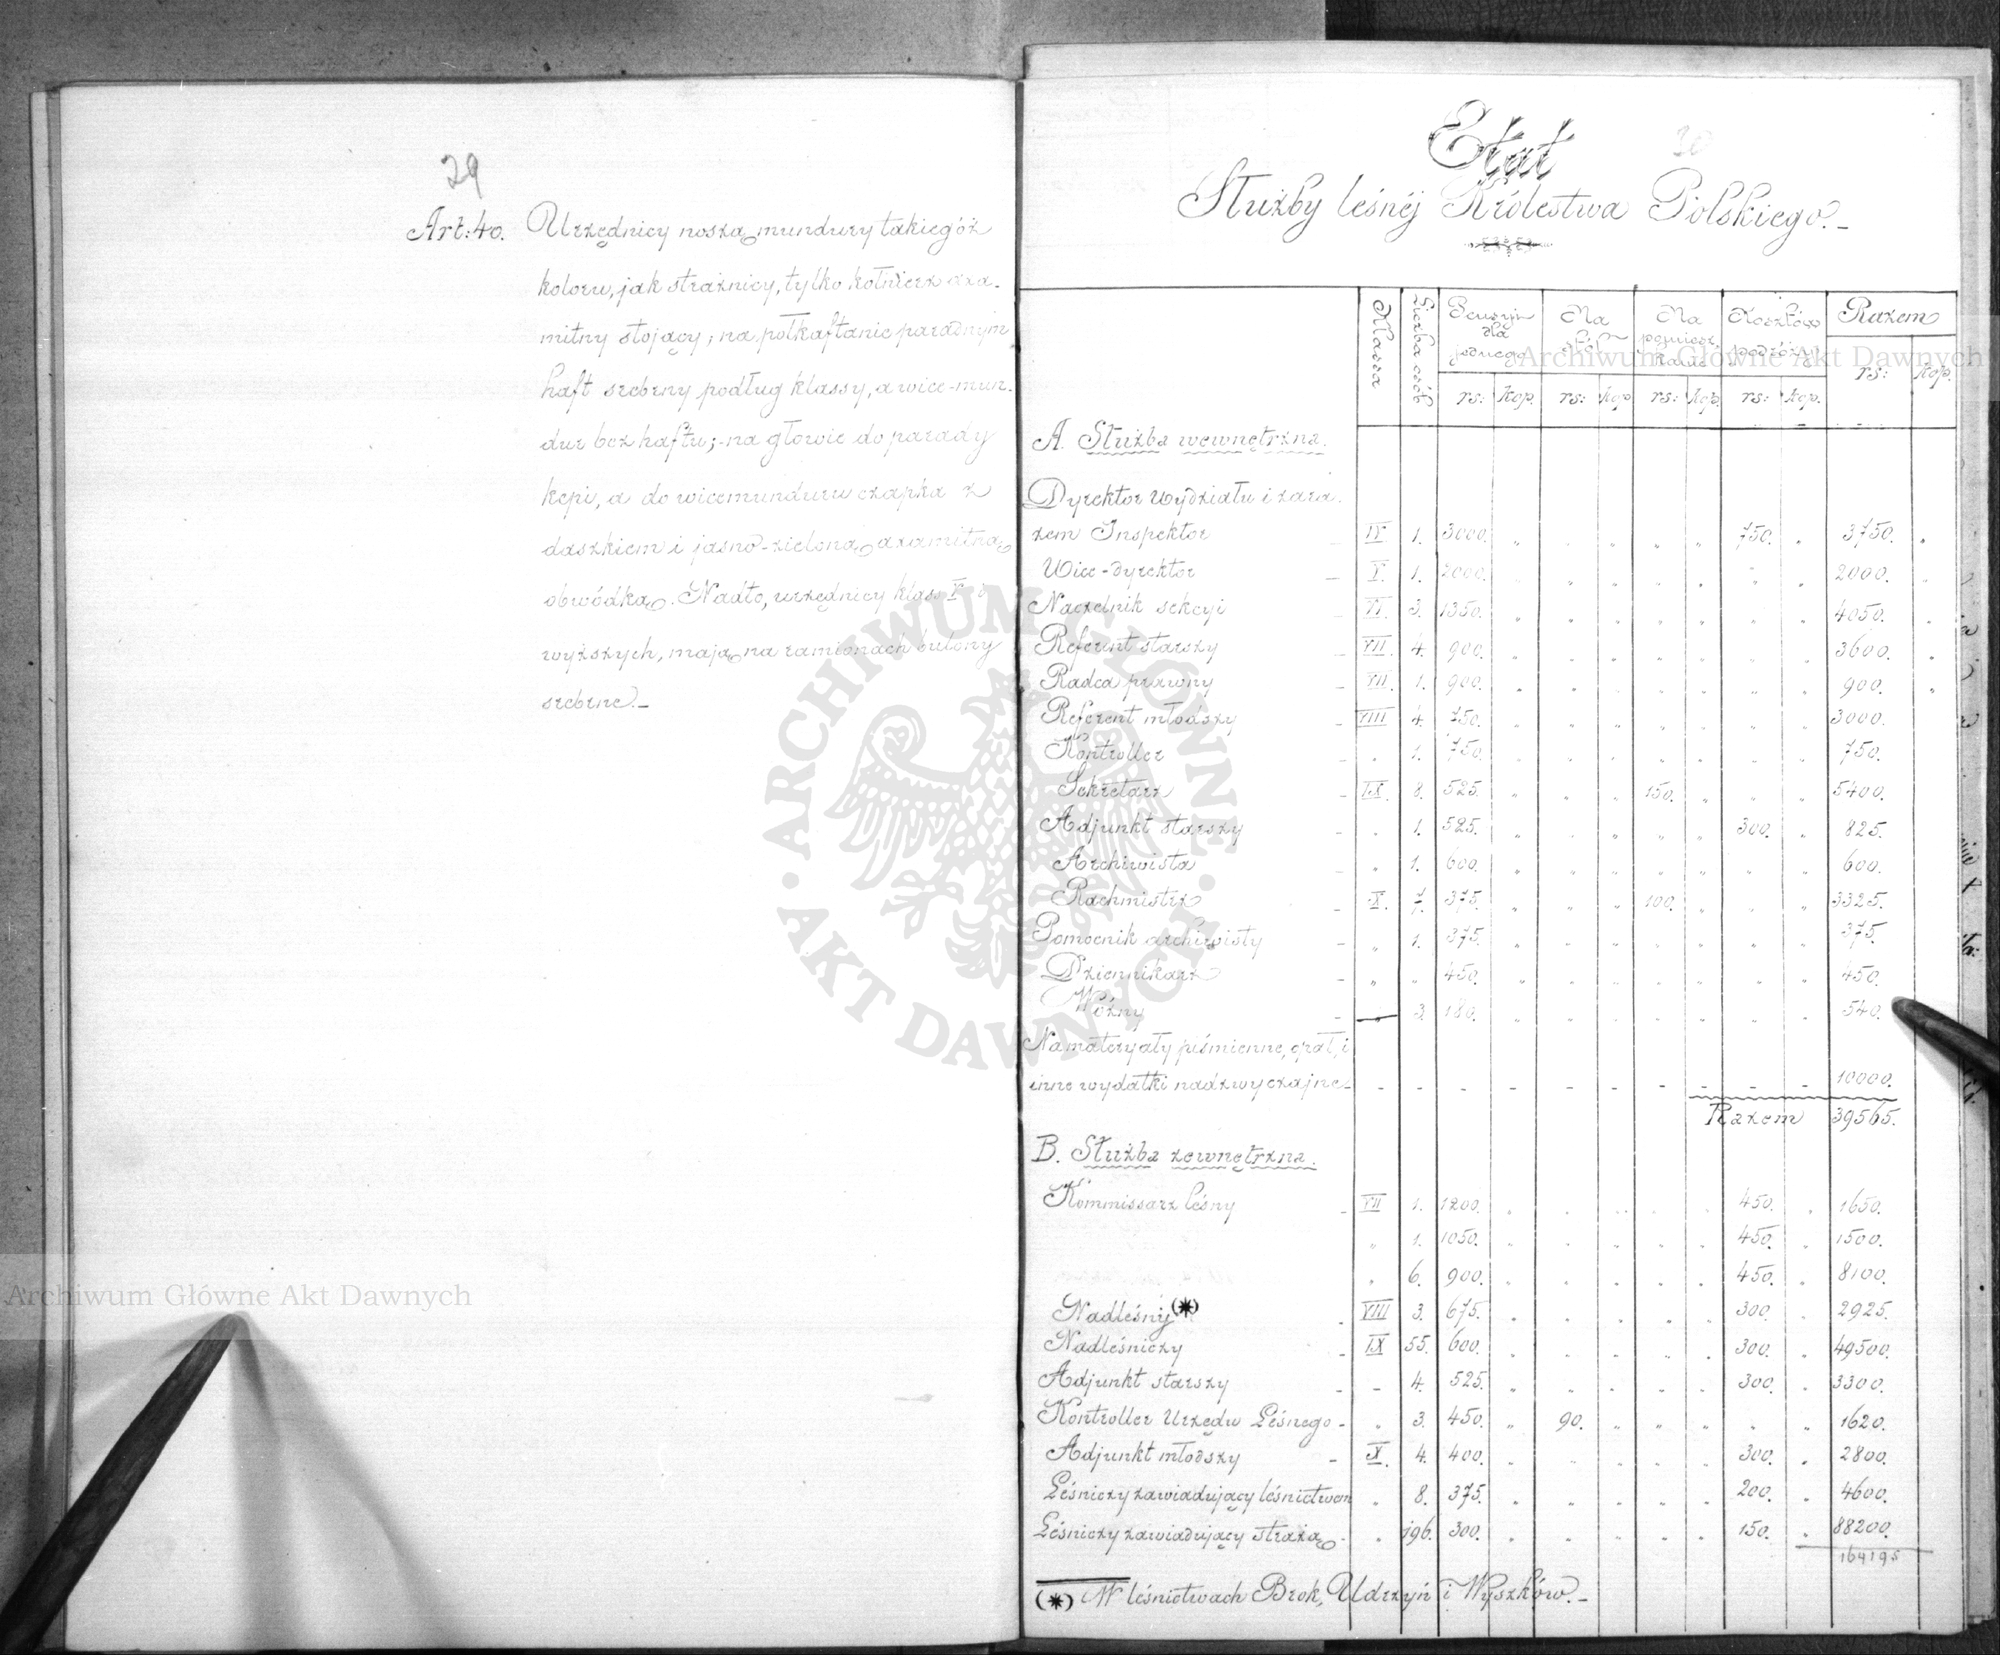 29
Art: 40. Urzędnicy noszą mundury takiegóż
koloru, jak strażnicy, tylko kołnierz axa-
mitny stojący; na półkaftanie paradnym
haft srebrny podług klassy, a wice-mun-
dur bez haftu; - na głowie do parady
kepi, a do wicemunduru czapka z
daszkiem i jasno-zieloną axamitną
obwódką. Nadto, urzędnicy klass V i
wyższych, mają na ramionach buliony
srebrne. -
Etat
Służby leśnéj Królestwa Polskiego. -
Klassa | Liczba osób | Pensyja dla jednego | Na stół | Na pomieszkanie | Kosztów podróży | Razem
rs: kop. | rs: kop. | rs: kop. | rs: kop. | rs: kop.
A. Służba wewnętrzna.
Dyrektor wydziału i zara-
zem Inspektor - IV 1. 3000. " " " " " 750. " 3750. "
Wice-dyrektor - V. 1. 2000. " " " " " " " 2000. "
Naczelnik sekcyi - VI. 3. 1350. " " " " " " " 4050. "
Referent starszy - VII. 4. 900. " " " " " " " 3600. "
Radca prawny - VII. 1. 900. " " " " " " " 900. "
Referent młodszy - VIII 4. 750. " " " " " " " 3000.
Kontroller - " 1. 750. " " " " " " " 750.
Sekretarz - IX. 8. 525. " " " 150. " " " 5400.
Adjunkt starszy - " 1. 525. " " " " " 300. " 825.
Archiwista - " 1. 600. " " " " " " " 600.
Rachmistrz - X. 7. 375. " " " 100. " " " 3325.
Pomocnik archiwisty - " 1. 375. " " " " " " " 375.
Dziennikarz - " " 450. " " " " " " " 450.
Woźny - " 3. 180. " " " " " " " 540.
Na materyały piśmienne, opał, i
inne wydatki nadzwyczajne - - - - - - - - - - 10000.
Razem 39565.
B. Służba zewnętrzna.
Kommissarz leśny - VII 1. 1200. " " " " " 450. " 1650.
" 1. 1050. " " " " " 450. " 1500.
" 6. 900. " " " " " 450. " 8100.
Nadleśny (*) - VIII 3. 675. " " " " " 300. " 2925.
Nadleśniczy - IX 55. 600. " " " " " 300. " 49500.
Adjunkt starszy - - 4. 525. " " " " " 300. " 3300.
Kontroller Urzędu Leśnego - " 3. 450. " 90. " " " " " 1620.
Adjunkt młodszy - X. 4. 400. " " " " " 300. " 2800.
Leśniczy zawiadujący leśnictwem " 8. 375. " " " " " 200. " 4600.
Leśniczy zawiadujący strażą - " 196. 300. " " " " " 150. " 88200.
164195
(*) W leśnictwach Brok, Udrzyń i Wyszków. -
Archiwum Główne Akt Dawnych
Archiwum Główne Akt Dawnych
ARCHIWUM GŁÓWNE · AKT DAWNYCH ·